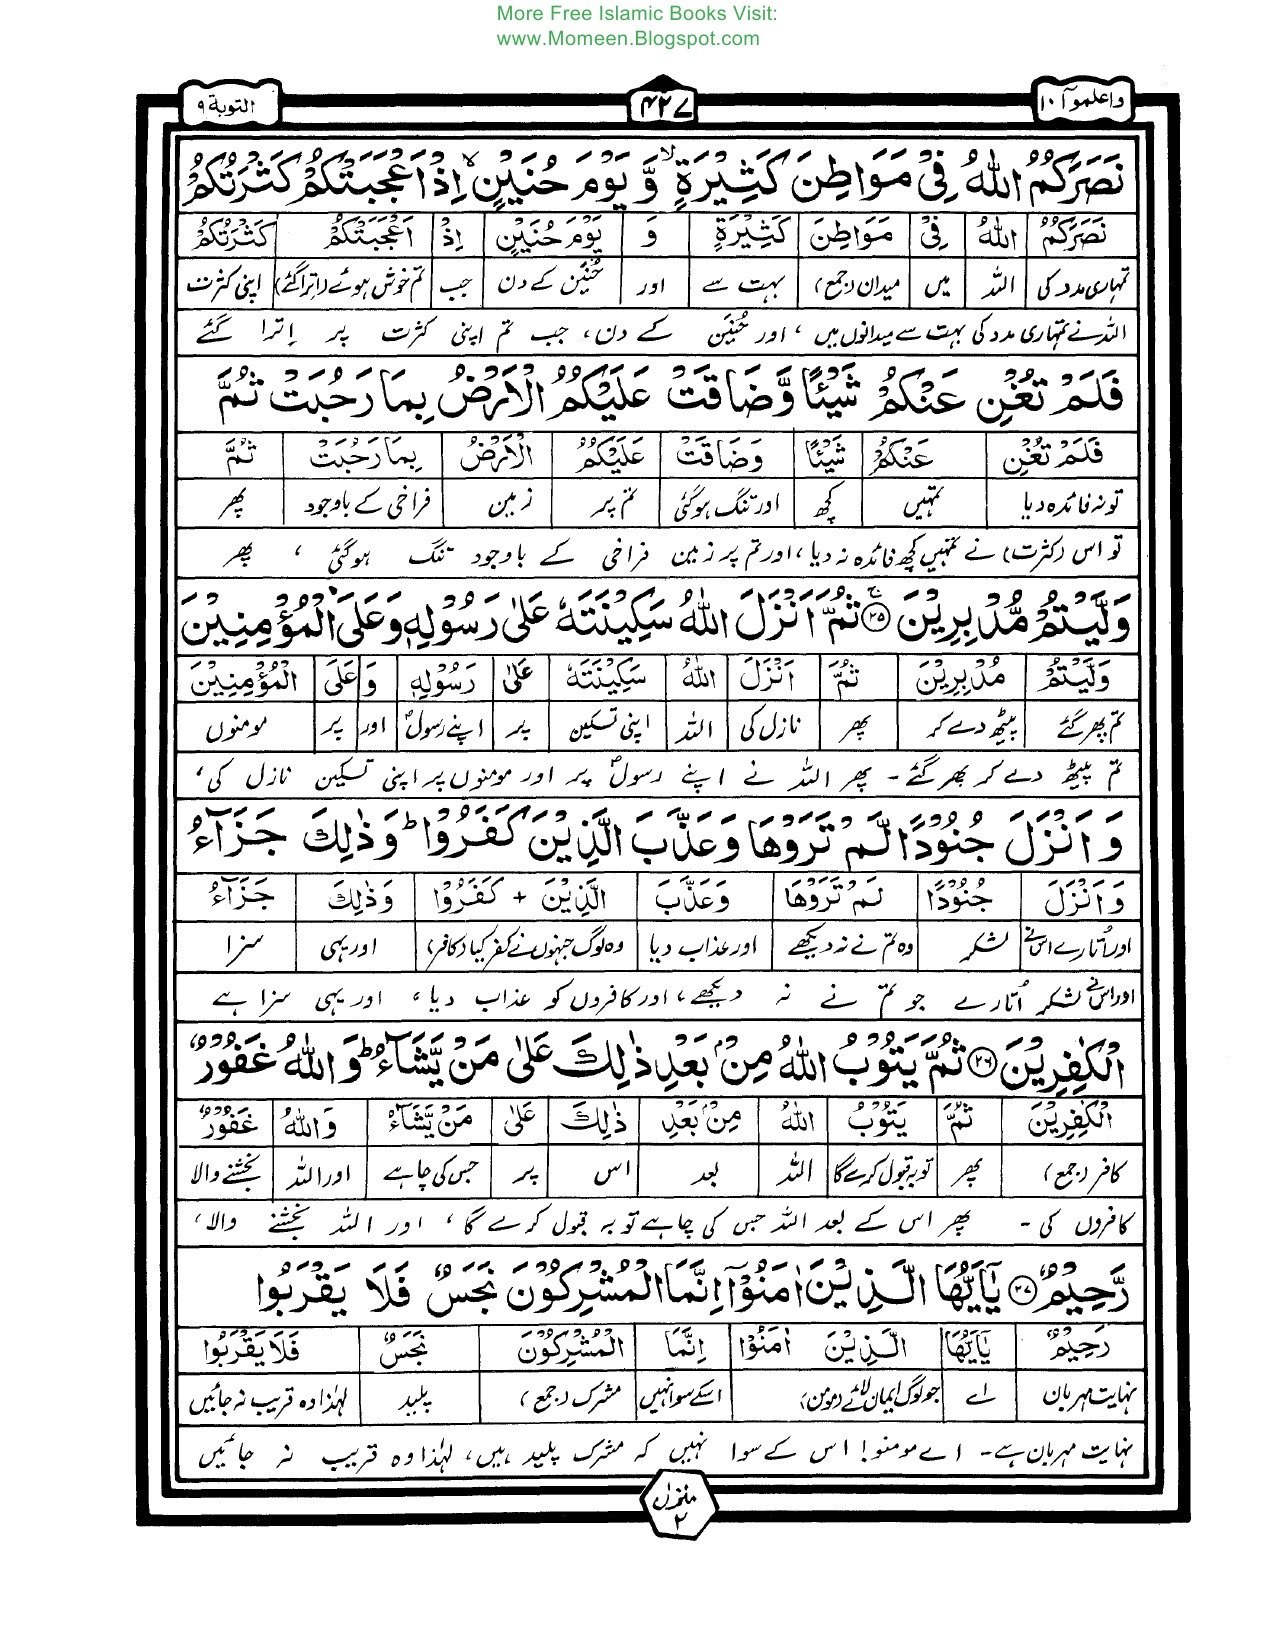 More Free Islamic Books Visit:
www.Momeen.Blogspot.com
واعلموآ ۱۰
۴۲۷
التوبة ۹
نَصَرَكُمُ اللّٰهُ فِيْ مَوَاطِنَ كَثِيْرَةٍ ۙ وَّ يَوْمَ حُنَيْنٍ ۙ اِذْ اَعْجَبَتْكُمْ كَثْرَتُكُمْ
نَصَرَكُمُ اللّٰهُ فِيْ مَوَاطِنَ كَثِيْرَةٍ وَ يَوْمَ حُنَيْنٍ اِذْ اَعْجَبَتْكُمْ كَثْرَتُكُمْ
تمہاری مدد کی اللہ میں میدان (جمع) بہت سے اور حُنَین کے دن جب تم خوش ہوئے (اترا گئے) اپنی کثرت
اللہ نے تمہاری مدد کی بہت سے میدانوں میں ، اور حُنَین کے دن، جب تم اپنی کثرت پر اِترا گئے
فَلَمْ تُغْنِ عَنْكُمْ شَيْئًا وَّضَاقَتْ عَلَيْكُمُ الْاَرْضُ بِمَا رَحُبَتْ ثُمَّ
فَلَمْ تُغْنِ عَنْكُمْ شَيْئًا وَضَاقَتْ عَلَيْكُمُ الْاَرْضُ بِمَا رَحُبَتْ ثُمَّ
تو نہ فائدہ دیا تمہیں کچھ اور تنگ ہوگئی تم پر زمین فراخی کے باوجود پھر
تو اس (کثرت) نے تمہیں کچھ فائدہ نہ دیا ، اور تم پر زمین فراخی کے باوجود تنگ ہوگئی ، پھر
وَلَّيْتُمْ مُّدْبِرِيْنَ ۚ ۲۵ ثُمَّ اَنْزَلَ اللّٰهُ سَكِيْنَتَهٗ عَلٰى رَسُوْلِهٖ وَعَلَى الْمُؤْمِنِيْنَ
وَلَّيْتُمْ مُدْبِرِيْنَ ثُمَّ اَنْزَلَ اللّٰهُ سَكِيْنَتَهٗ عَلٰى رَسُوْلِهٖ وَ عَلَى الْمُؤْمِنِيْنَ
تم پھر گئے پیٹھ دے کر پھر نازل کی اللہ اپنی تسکین پر اپنے رسولؐ اور پر مومنوں
تم پیٹھ دے کر پھر گئے - پھر اللہ نے اپنے رسولؐ پر اور مومنوں پر اپنی تسکین نازل کی ،
وَ اَنْزَلَ جُنُوْدًا لَّمْ تَرَوْهَا وَعَذَّبَ الَّذِيْنَ كَفَرُوْا ؕ وَذٰلِكَ جَزَآءُ
وَ اَنْزَلَ جُنُوْدًا لَمْ تَرَوْهَا وَعَذَّبَ الَّذِيْنَ + كَفَرُوْا وَذٰلِكَ جَزَآءُ
اور اُتارے اس نے لشکر وہ تم نے نہ دیکھے اور عذاب دیا وہ لوگ جنہوں نے کفر کیا (کافر) اور یہی سزا
اور اس نے لشکر اُتارے جو تم نے نہ دیکھے، اور کافروں کو عذاب دیا ، اور یہی سزا ہے
الْكٰفِرِيْنَ ۲۶ ثُمَّ يَتُوْبُ اللّٰهُ مِنْۢ بَعْدِ ذٰلِكَ عَلٰى مَنْ يَّشَآءُ ؕ وَاللّٰهُ غَفُوْرٌ
الْكٰفِرِيْنَ ثُمَّ يَتُوْبُ اللّٰهُ مِنْۢ بَعْدِ ذٰلِكَ عَلٰى مَنْ يَّشَآءُ وَاللّٰهُ غَفُوْرٌ
کافر (جمع) پھر توبہ قبول کرے گا اللہ بعد اس پر جس کی چاہے اور اللہ بخشنے والا
کافروں کی - پھر اس کے بعد اللہ جس کی چاہے توبہ قبول کرے گا ، اور اللہ بخشنے والا ،
رَّحِيْمٌ ۲۷ يٰٓاَيُّهَا الَّذِيْنَ اٰمَنُوْٓا اِنَّمَا الْمُشْرِكُوْنَ نَجَسٌ فَلَا يَقْرَبُوا
رَحِيْمٌ يٰٓاَيُّهَا الَّذِيْنَ اٰمَنُوْا اِنَّمَا الْمُشْرِكُوْنَ نَجَسٌ فَلَا يَقْرَبُوا
نہایت مہربان اے جو لوگ ایمان لائے (مومن) اسکے سوا نہیں مشرک (جمع) پلید لہٰذا وہ قریب نہ جائیں
نہایت مہربان ہے - اے مومنو! اس کے سوا نہیں کہ مشرک پلید ہیں، لہٰذا وہ قریب نہ جائیں
منزل
۲